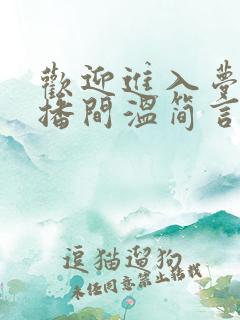 歡迎進入夢
播間溫簡言
逗猫遛狗
未经同意禁止转载